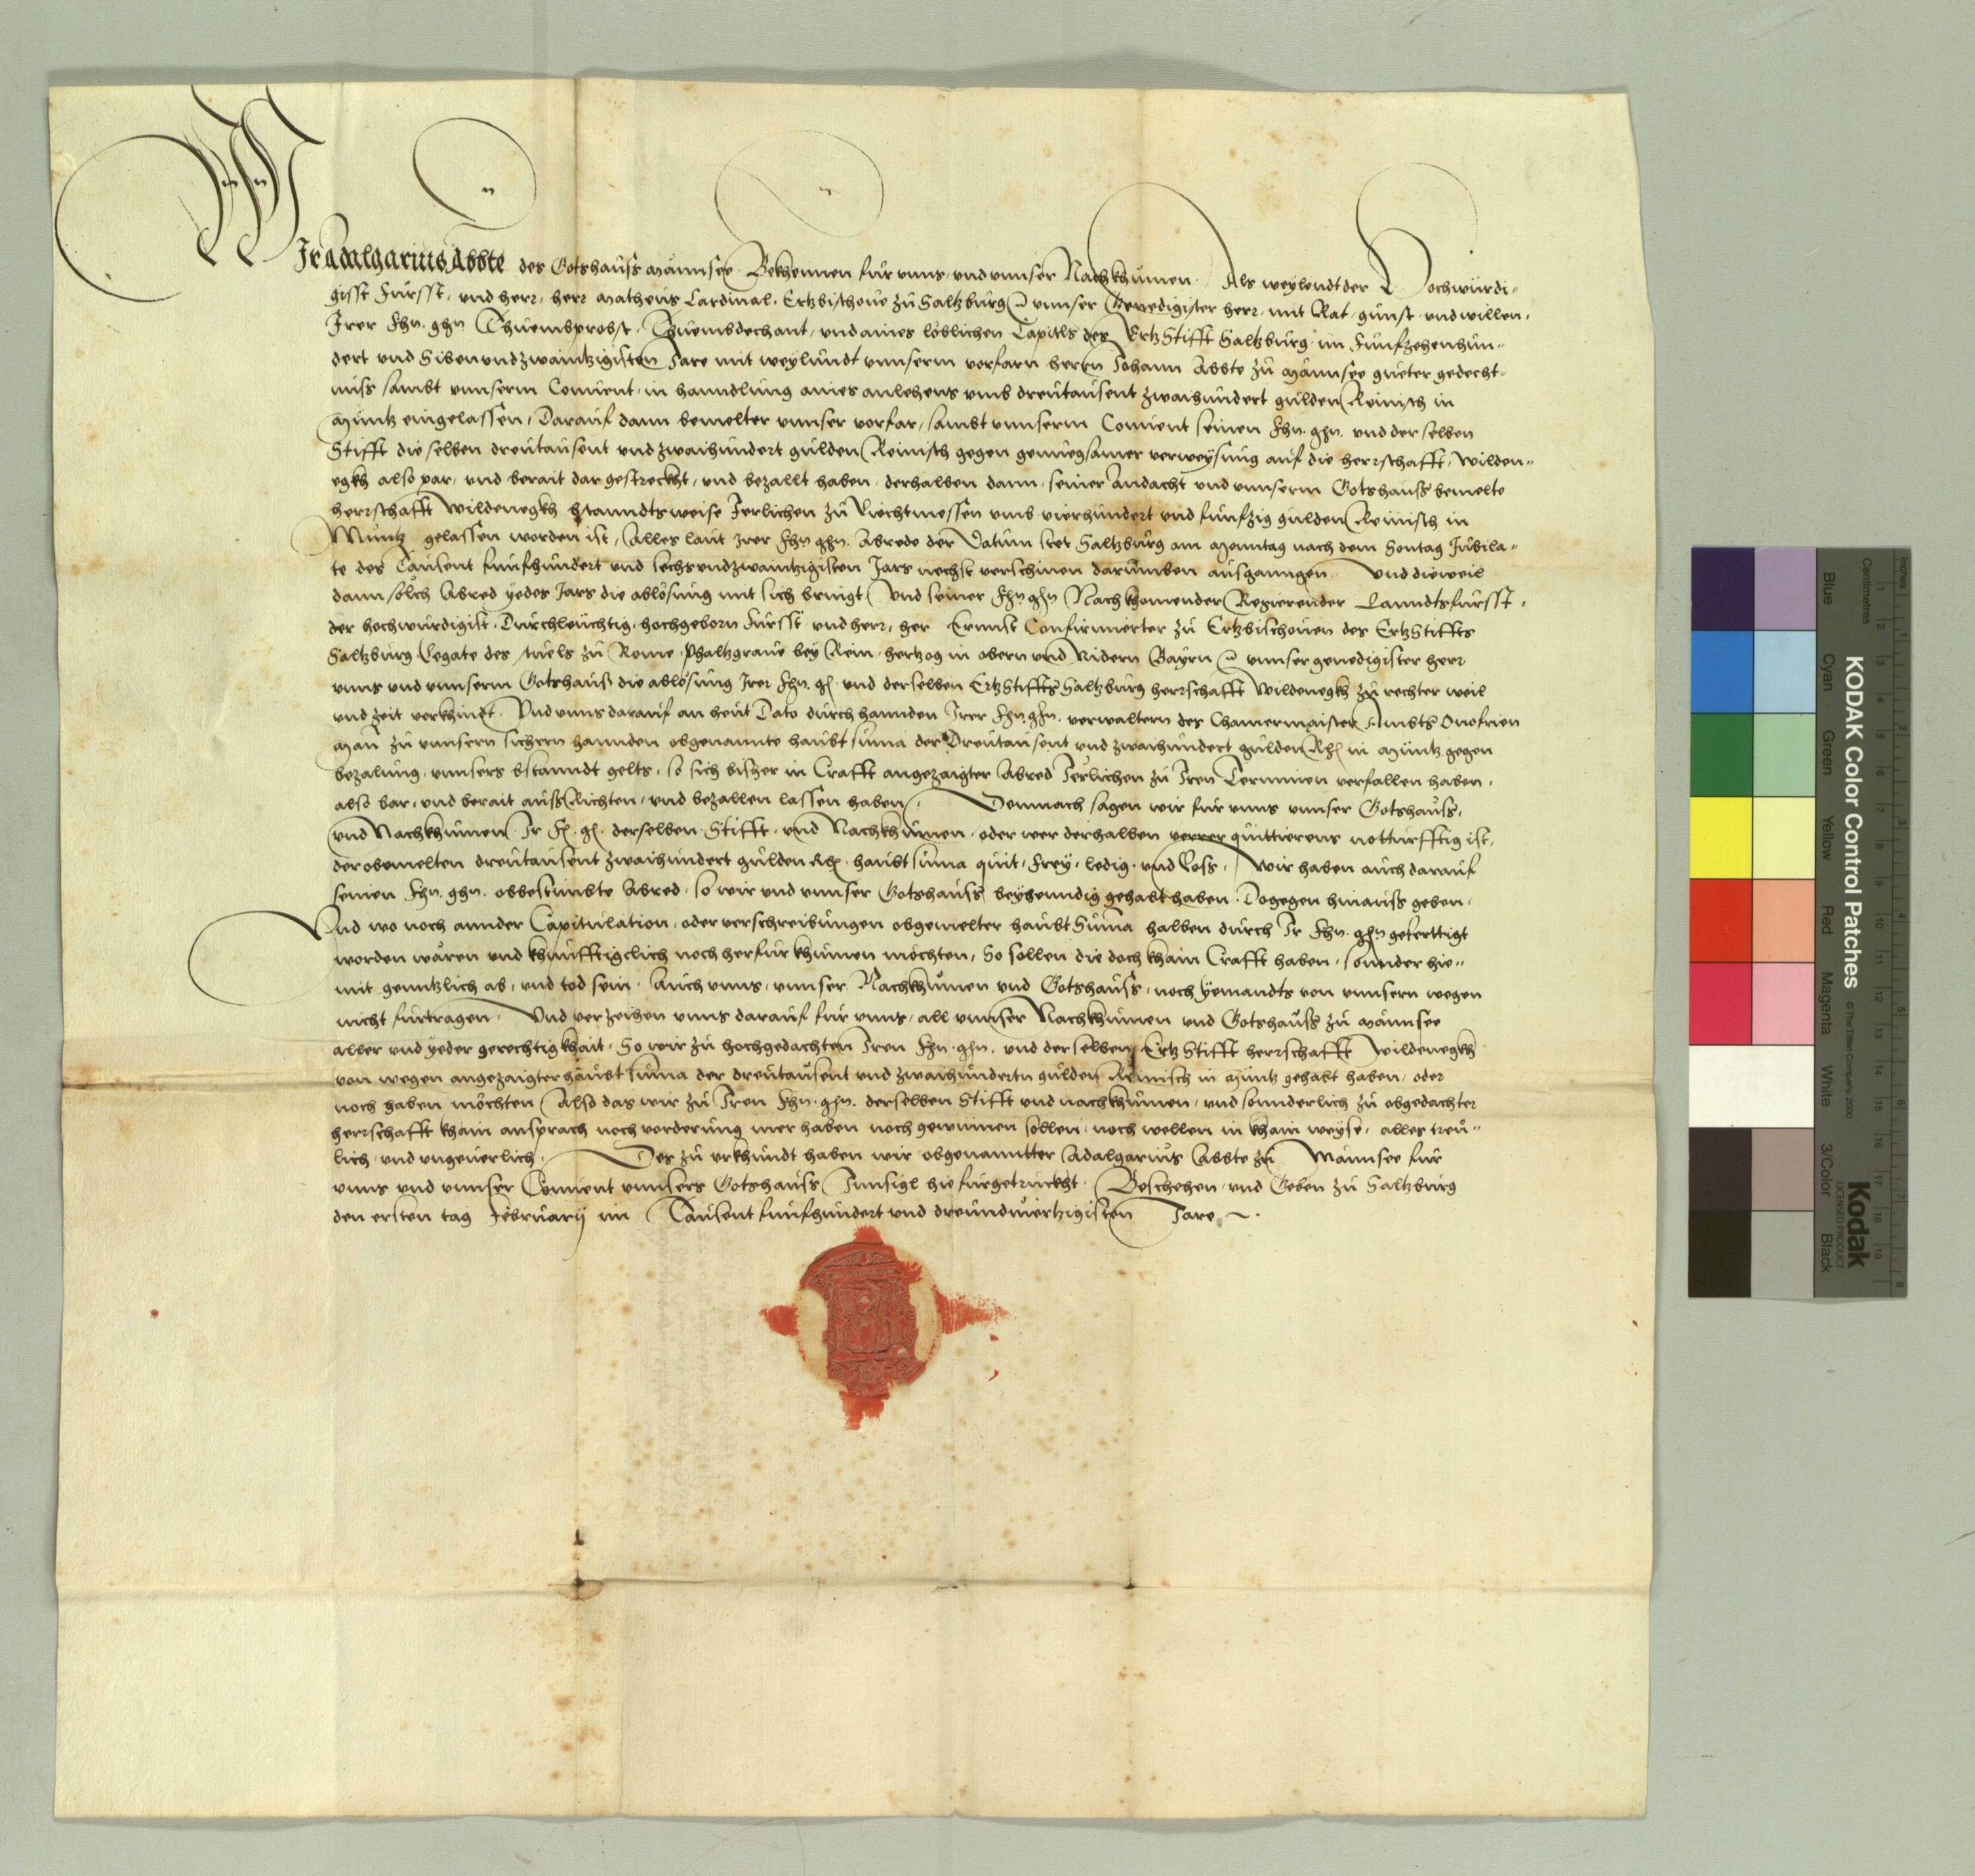 Wir Adalgarius Abbte des Gotshauss Männsee Bekhennen für unns, und unnser Nachkhumen. Als weylendt der Hochwürdi-
gisst Fürsst, und herr, herr Matheus Cardinal, Ertzbischove zu Saltzburg unnser Genedigister herr, mit Rat, gunst, und willen,
Irer Fhn. ghn Thuembsprobst, Thuembdechant, und aines löblichen Capitls des Ertz Stifft Saltzburg, im Funfzehenhun-
dert und Sibenundzwaintzigisten Jare mit weylundt unnserm vorfarn herrn Johann Abbte zu Männsee gueter gedecht-
nuss sambt unnserm Convent, in hanndlung aines anlehens umb dreutausent zwaihundert gulden Reinisch in
Müntz eingelassen, Darauf dann bemelter unnser vorfar, sambt unnserm Convent seinen Fhn. ghn. und derselben
Stifft dieselben dreutausent und zwaihundert gulden Reinisch gegen genuegsamer verweysung auf die herrschafft, Wilden-
egkh also par, und berait dargestreckht, und bezallt haben, derhalben dann, seiner Andacht und unnserm Gotshauss bemelte
herrschafft Wildenegkh bstanndtsweise Jerlichen zu Liechtmessen umb vierhundert und funfzig gulden Reinisch in
Müntz gelassen worden ist, Alles laut Irer Fhn ghn. Abrede der Datum stet Saltzburg am Monntag nach dem Sontag Jubila-
te des Tausent funfhundert und sechsundzwaintzigisten Jars nechst verschinen darumben ausganngen. Und dieweil
dann solch Abred yedes Jars die ablösung mit sich bringt Und seiner Fhn ghn Nachkhomender Regierender Lanndtsfürsst,
der hochwurdigist, Durchleuchtig, hochgeborn Fürsst und herr, her Ernnst Confirmierter zu Ertzbischoven des Ertz Stiffts
Saltzburg Legate des stuels zu Rome, Phaltzgrave bey Rein, hertzog in obern und Nidern Bayrn unnser genedigister herr
unns und unnserm Gotshauss die ablösung Irer Fhn. g. und derselben Ertz Stiffts Saltzburg herrschafft Wildenegkh zu rechter weil
und zeit verkhindt. Und unns darauf an heut Dato durch hannden Irer Fhn ghn. verwaltern des Chamermaister Ambts Onofrien
Man zu unnsern sichern hannden obgenannte haubtsuma der Dreutausent und zwaihundert gulden Rh in Müntz gegen
bezalung, unnsers bstanndt gelts, so sich bisher in Crafft angezaigter Abred Jerlichen zu Iren Terminen verfallen haben,
also bar, und berait aussRichten, und bezallen lassen haben. Demnach sagen wir für unns unnser Gotshauss,
und Nachkhumen Ir F. g. derselben Stifft, und Nachkhumen, oder wer derhalben verrer quittierens notturfftig ist,
der obemelten dreutausent zwaihundert gulden Rh. haubtsuma quit, frey, ledig, und loss, Wir haben auch darauf
seinen Fhn. ghn. obbestimbte Abred, so wir und unnser Gotshauss beyhenndig gehabt haben, Dogegen hinauss geben,
Und wo noch annder Capitulation, oder verschreibungen obgemelter haubt Suma halben durch Ir Fhn. ghn geferttigt
worden wären und khunfftigclich noch herfür khumen möchten, So sollen die doch khain Crafft haben, sonnder hie-
mit genntzlich ab, und tod sein, Auch unns, unnser Nachkhumen und Gotshauss, noch yemandts von unnsern wegen
nicht fürtragen. Und verzeihen unns darauf für unns, all unnser Nachkhumen und Gotshauss zu Männsee
aller und yeder gerechtigkhait, So wir zu hochgedachten Iren Fhn. ghn. und derselben Ertz Stifft herrschafft Wildenegkh
von wegen angezaigter haubtsuma der dreutausent und zwaihundertn gulden Reinisch in Müntz gehabt haben, oder
noch haben möchten Also das wir zu Iren Fhn. ghn. derselben Stifft und nachkhumen, und sonnderlich zu obgedachter
herrschafft khain ansprach noch vorderung mer haben noch gewinnen sollen, noch wellen in khain weyse, alles treu-
lich und ungeverlich. Des zu urkhundt haben wir obgenanntter Adalgarius Abbte zu Männsee für
unns und unnser Convent unnsers Gotshauss Innsigl hiefurgetruckht. Beschehen, und Geben zu Saltzburg
den ersten tag February im Tausent funfhundert und dreundviertzigisten Jare.
KODAK Color Control Patches
© The Tiffen Company, 2000
Kodak
LICENSED PRODUCT
Inches
Centimetres
Blue Cyan Green Yellow Red Magenta White 3/Color Black